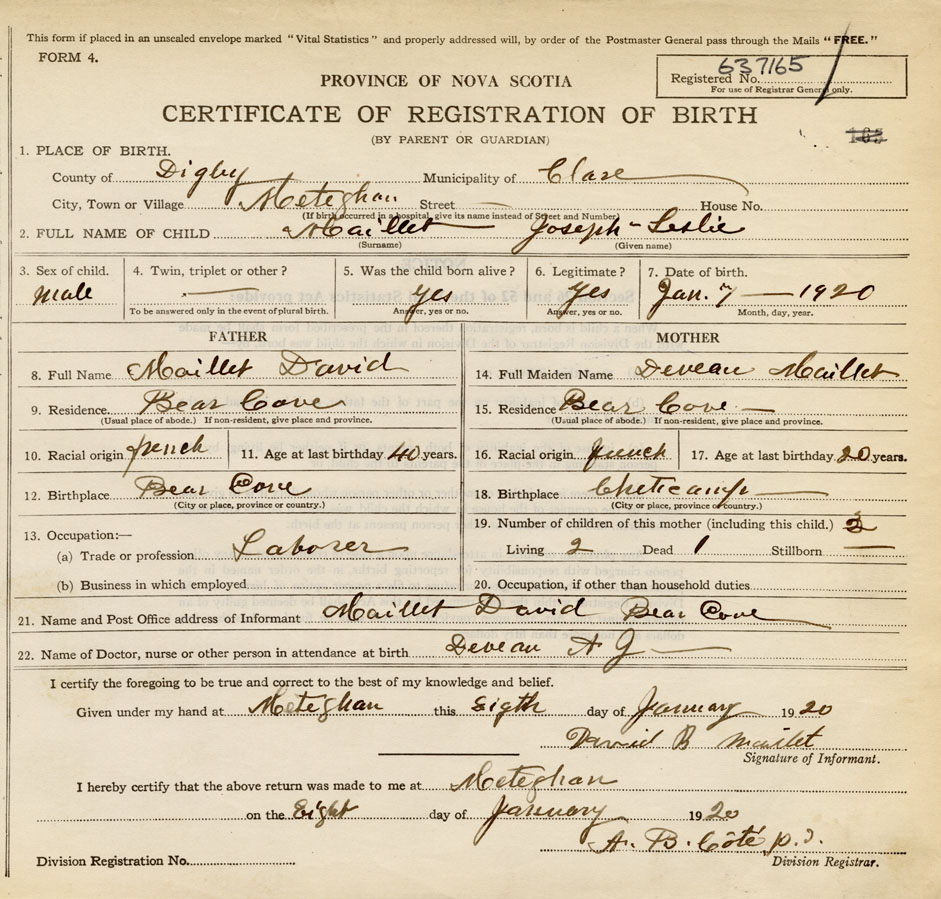 This form if placed in an unsealed envelope marked "Vital Statistics" and properly addressed will, by order of the Postmaster General pass through the Mails "FREE."
FORM 4.
637165
Registered No.
For use of Registrar General only.
PROVINCE OF NOVA SCOTIA
CERTIFICATE OF REGISTRATION OF BIRTH
(BY PARENT OR GUARDIAN)
165
1. PLACE OF BIRTH.
County of Digby Municipality of Clare
City, Town or Village Meteghan Street — House No.
(If birth occurred in a hospital, give its name instead of Street and Number)
2. FULL NAME OF CHILD Maillet — Joseph - Leslie
(Surname) (Given name)
3. Sex of child. 4. Twin, triplet or other? 5. Was the child born alive? 6. Legitimate? 7. Date of birth.
male — yes yes Jan. 7 — 1920
To be answered only in the event of plural birth. Answer, yes or no. Answer, yes or no. Month, day, year.
FATHER MOTHER
8. Full Name Maillet David 14. Full Maiden Name Deveau Maillet
9. Residence Bear Cove 15. Residence Bear Cove —
(Usual place of abode.) If non-resident, give place and province. (Usual place of abode.) If non-resident, give place and province.
10. Racial origin french 11. Age at last birthday 40 years. 16. Racial origin french 17. Age at last birthday 20 years.
12. Birthplace Bear Cove 18. Birthplace Cheticamp —
(City or place, province or country.) (City or place, province or country.)
19. Number of children of this mother (including this child.) 3
13. Occupation:—
(a) Trade or profession Laborer Living 2 Dead 1 Stillborn —
(b) Business in which employed 20. Occupation, if other than household duties
21. Name and Post Office address of Informant Maillet David Bear Cove
22. Name of Doctor, nurse or other person in attendance at birth Deveau A J —
I certify the foregoing to be true and correct to the best of my knowledge and belief.
Given under my hand at Meteghan this Eigth day of January 1920
David B Maillet
Signature of Informant.
I hereby certify that the above return was made to me at Meteghan
on the Eight day of January 1920
A. B. Côté p.d.
Division Registration No. Division Registrar.